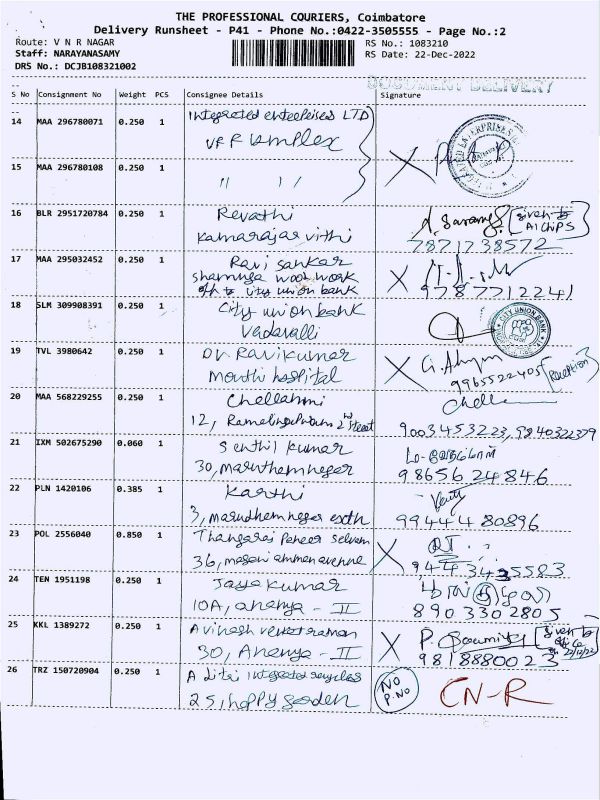 THE PROFESSIONAL COURIERS, Coimbatore
Delivery Runsheet - P41 - Phone No.:0422-3505555 - Page No.:2
Route: V N R NAGAR
Staff: NARAYANASAMY
DRS No.: DCJB108321002
RS No.: 1083210
RS Date: 22-Dec-2022
DOCUMENT DELIVERY
S No Consignment No Weight PCS Consignee Details Signature
14 MAA 296780071 0.250 1 Integrated enterprises LTD
VRR Complex
15 MAA 296780108 0.250 1
" "
16 BLR 2951720784 0.250 1 Revathi
Kamarajar vithi
[given to
7871738572
17 MAA 295032452 0.250 1 Ravi sankar
wood work
opp to city union bank
9787712241
18 SLM 309908391 0.250 1 City union bank
Vadavalli
CITY UNION BANK
19 TVL 3980642 0.250 1 Dr Ravikumar
hospital
9965522405 (Reception)
20 MAA 568229255 0.250 1 Chellammi
12, 2nd street
Chella
9003453223, 9840322379
21 IXM 502675290 0.060 1 Senthil kumar
30, maruthamnagar
98656 24846
22 PLN 1420106 0.385 1 Karthi
3, marudhamnagar
99444 80896
23 POL 2556040 0.850 1 Thangaraj Paneer selvam
36,
9443435583
24 TEN 1951198 0.250 1 Jayakumar
10A, ananya - II
8903302805
25 KKL 1389272 0.250 1 Avinash venkatraman
30, Ananya - II
P. Sowmiya [given to
9818880023 22/12/22
26 TRZ 150720904 0.250 1 Aditi integrated
25, happy garden
NO
P.NO
CN-R